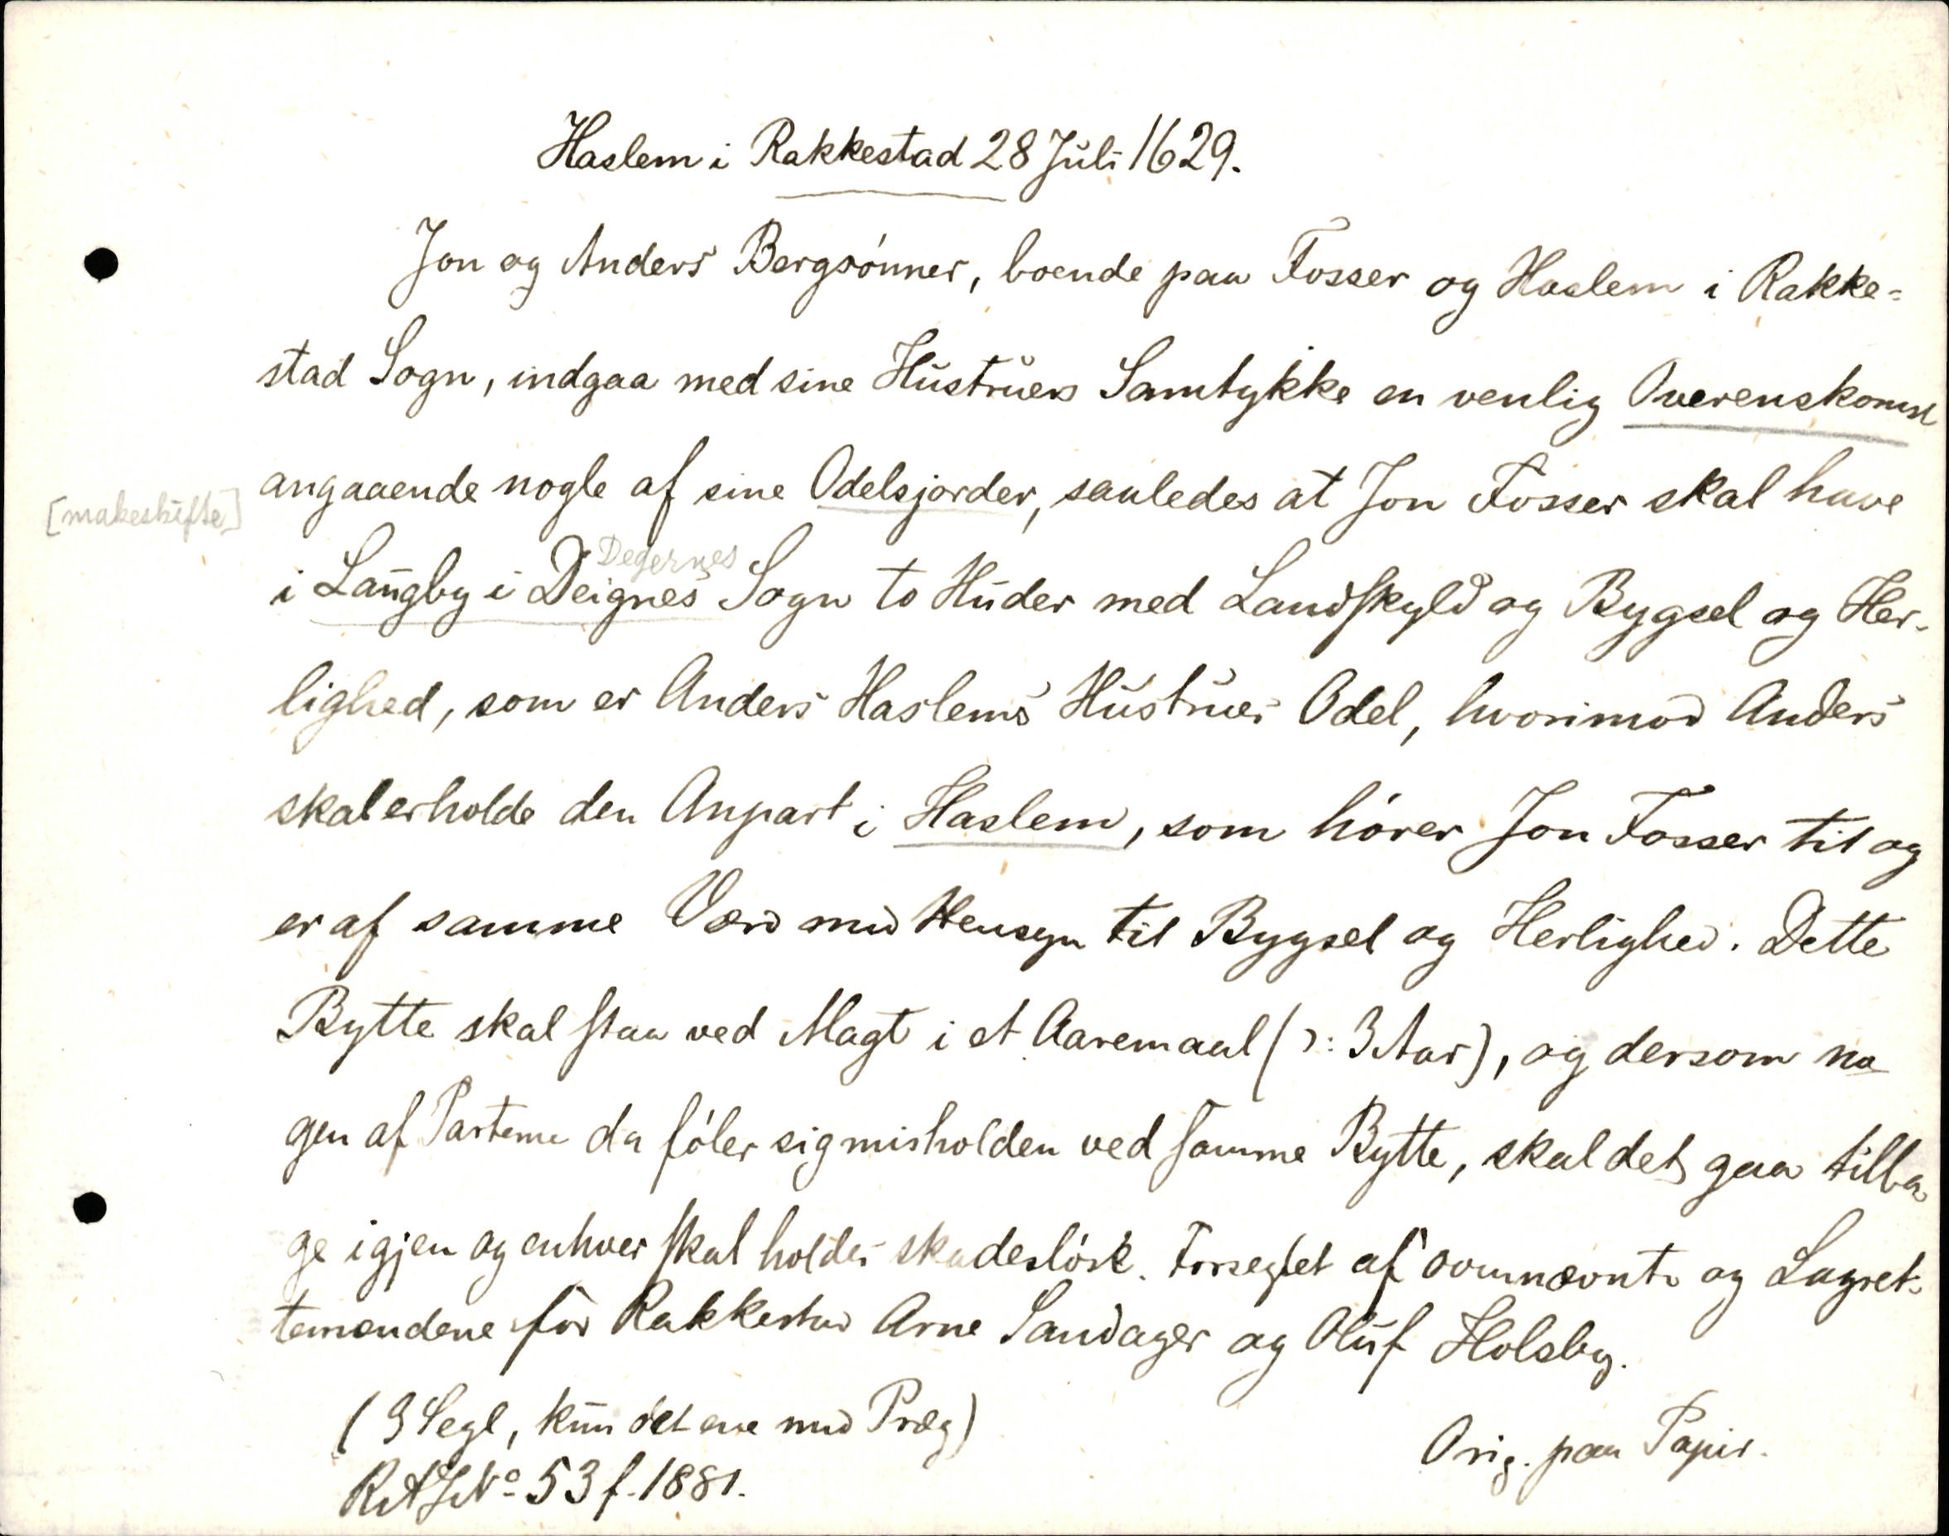 Haslem i Rakkestad 28 Juli 1629.
Jon og Anders Bergsønner, boende paa Fosser og Haslem i Rakke-
stad Sogn, indgaa med sine Hustruers Samtykke en venlig Overenskomst
angaaende nogle af sine Odelsjorder, saaledes at Jon Fosser skal have
[makeskifte]
Degernes
i Langby i Deignes Sogn to Huder med Landskyld og Bygsel og Her-
lighed, som er Anders Haslems Hustrues Odel, hvorimod Anders
skal erholde den Anpart i Haslem, som hører Jon Fosser til og
er af samme Værd med Hensyn til Bygsel og Herlighed. Dette
Bytte skal staa ved Magt i et Aaremaal (ɔ: 3 Aar), og dersom no
gen af Parterne da føler sig misholden ved samme Bytte, skal det gaa tilba
ge igjen og enhver skal holdes skadesløse. Forseglet af ovennævnte og Lagret-
temændene for Rakkestad Arne Sandager og Oluf Holsby.
(3 Segl, kun det ene med Præg)
Orig. paa Papir.
RA No 53 f. 1881.